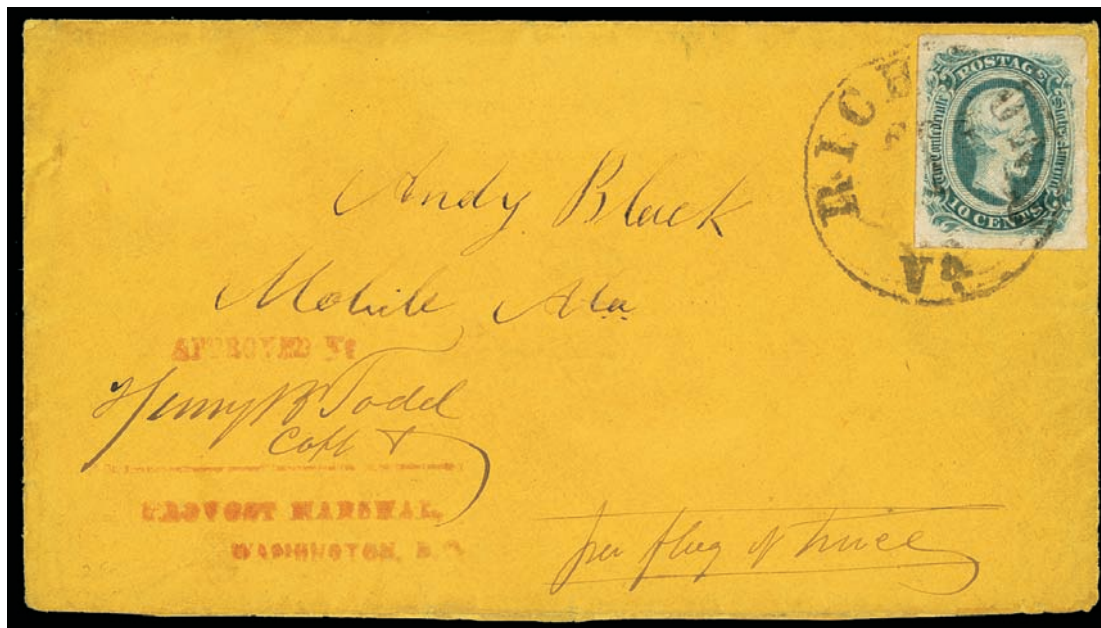 RICH
VA
POSTAGE
The Confederate States of America
10 CENTS
Andy Black
Mobile Ala
APPROVED BY
Henry B Todd
Capt &
PROVOST MARSHAL,
WASHINGTON, D.C.
per flag of truce